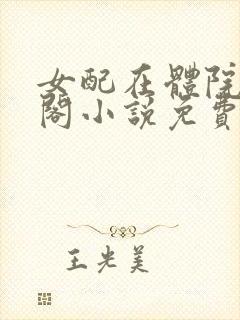 女配在體院
閣小說免費
王光美